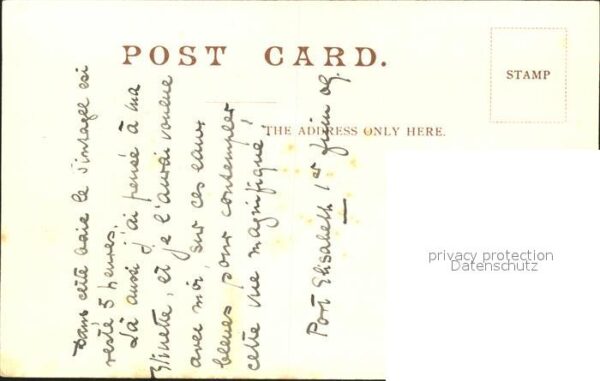 POST CARD.
STAMP
THE ADDRESS ONLY HERE.
Dans cette baie le s'intagel est
resté 5 heures.
Là aussi j'ai pensé à ma
Ninette, et je l'aurai voulue
avec moi, sur ces eaux
bleues pour contempler
cette vue magnifique!
Port Elisabeth 1er juin 09.
privacy protection
Datenschutz